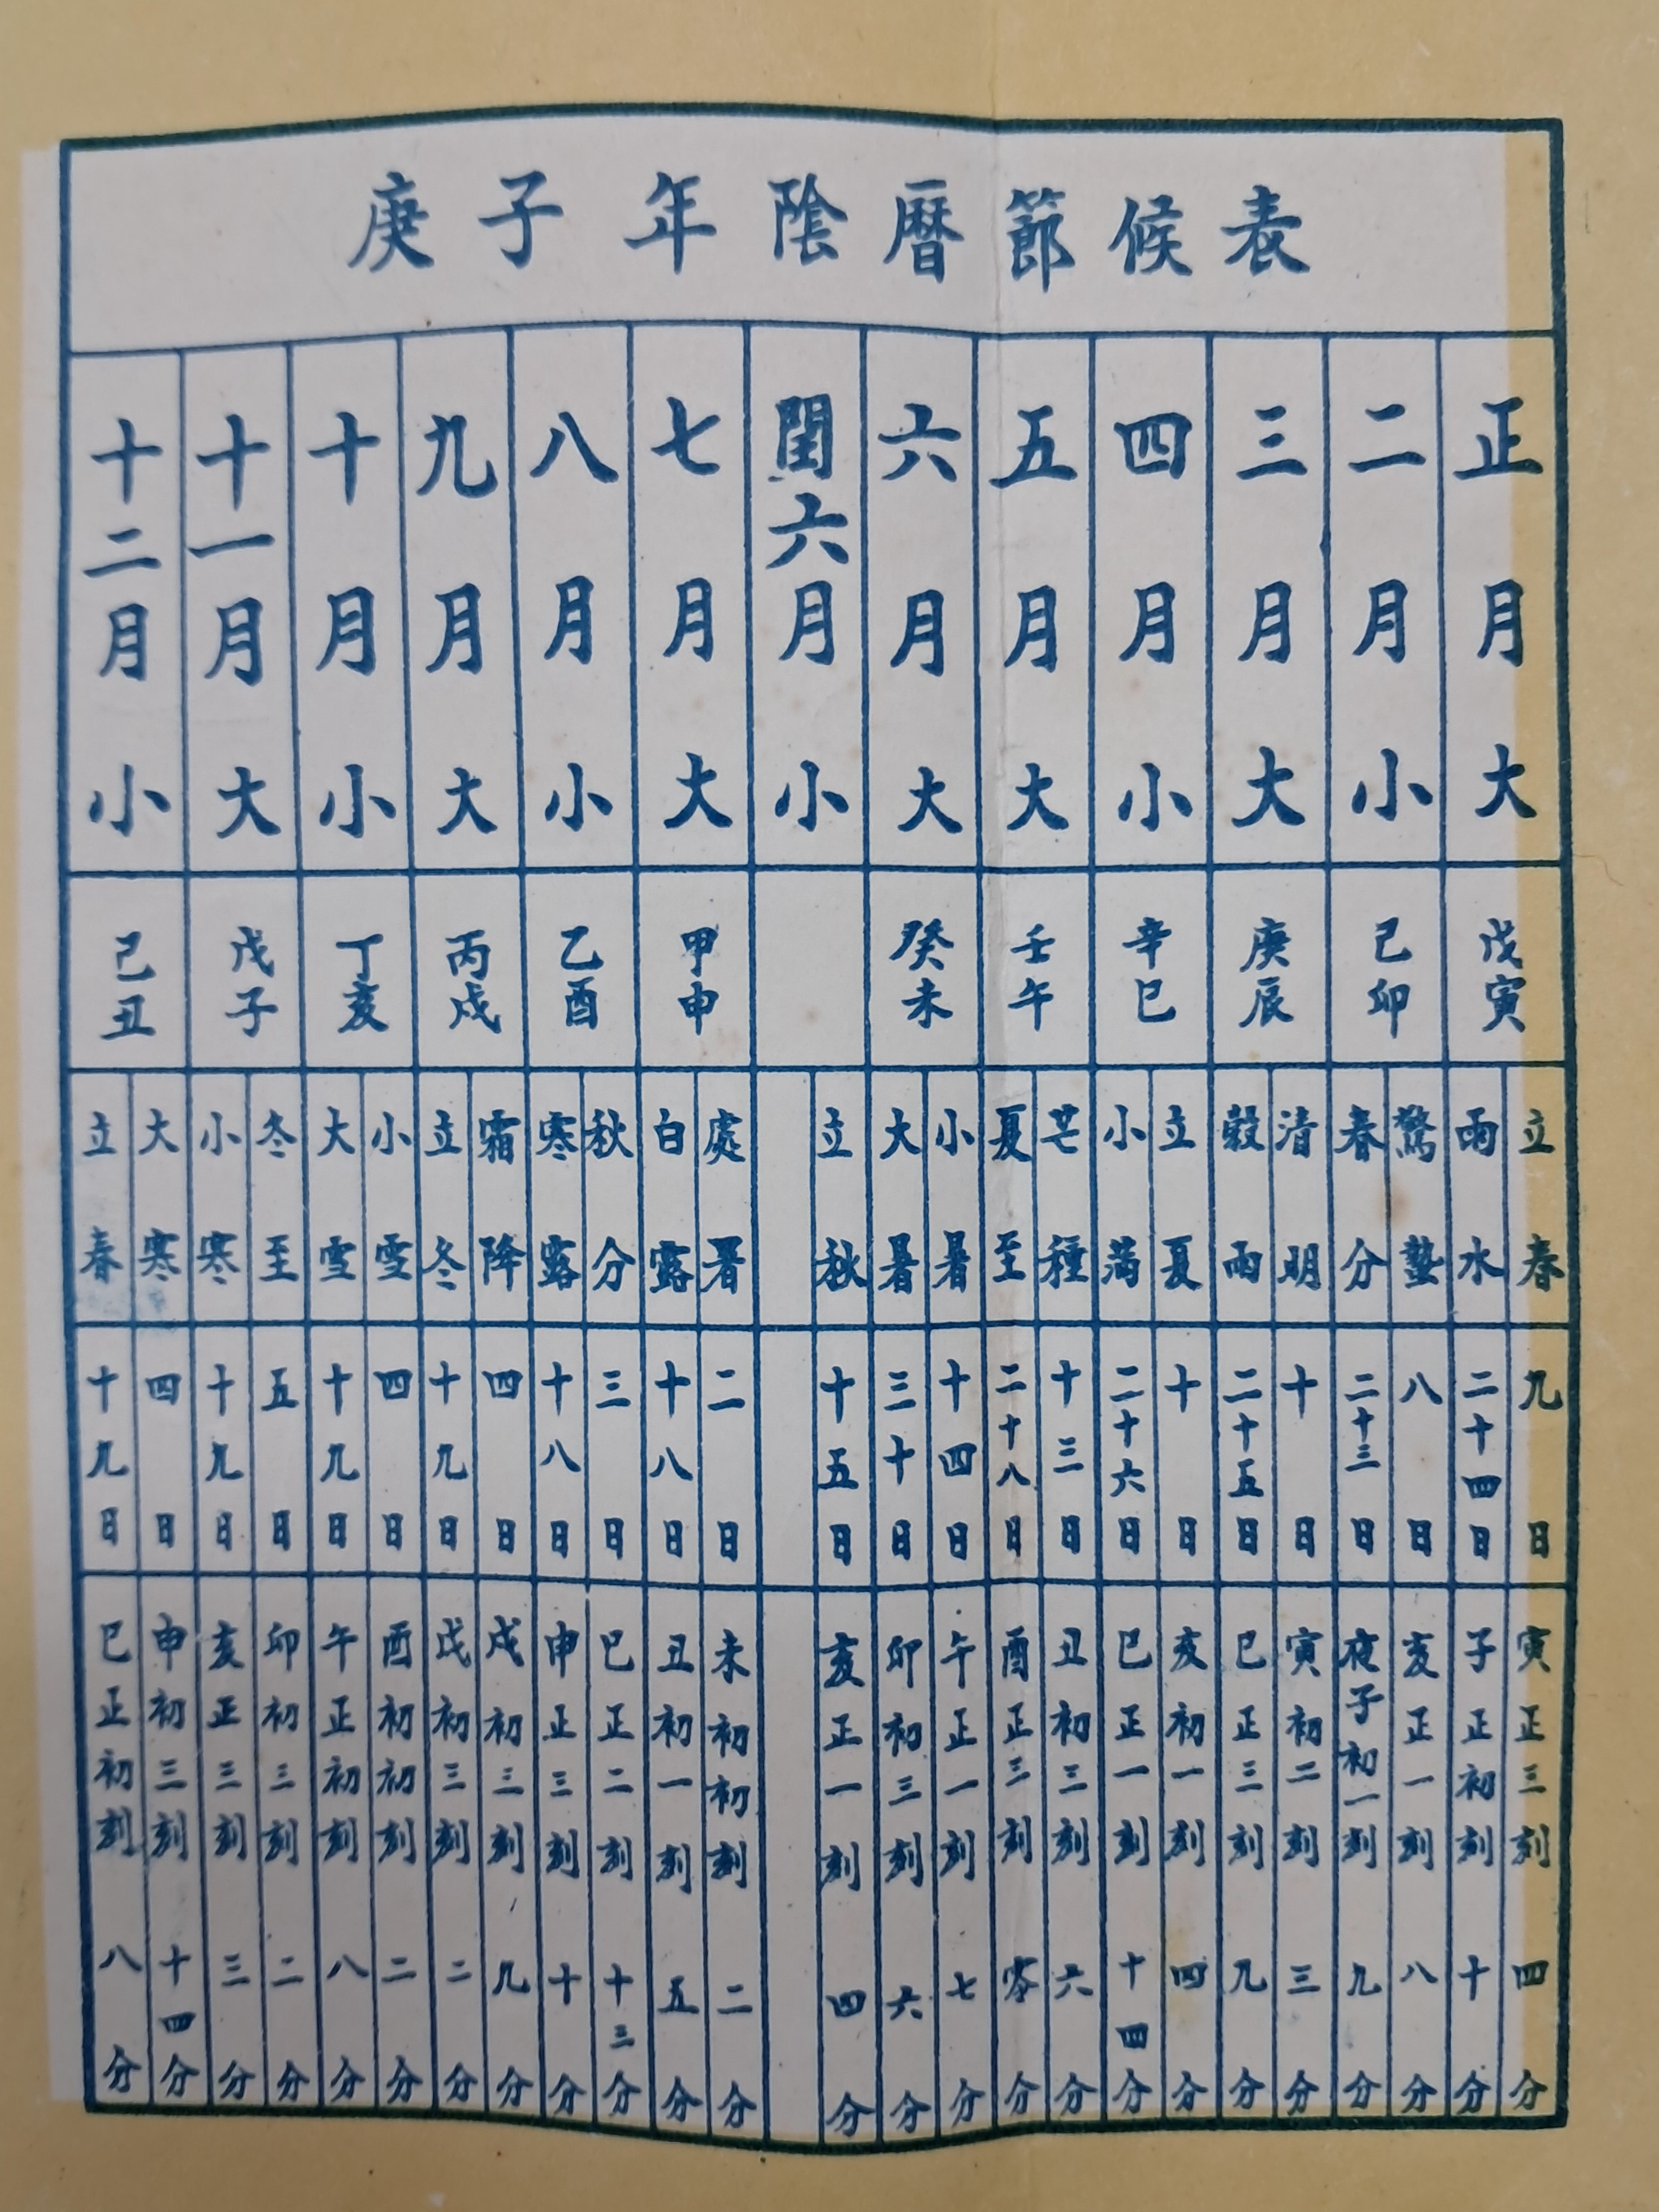 庚子年陰曆節候表
正月大
二月小
三月大
四月小
五月大
六月大
閏六月小
七月大
八月小
九月大
十月小
十一月大
十二月小
戊寅
己卯
庚辰
辛巳
壬午
癸未
甲申
乙酉
丙戌
丁亥
戊子
己丑
立春
雨水
驚蟄
春分
清明
穀雨
立夏
小滿
芒種
夏至
小暑
大暑
立秋
處暑
白露
秋分
寒露
霜降
立冬
小雪
大雪
冬至
小寒
大寒
立春
九日
二十四日
八日
二十三日
十日
二十五日
十日
二十六日
十三日
二十八日
十四日
三十日
十五日
二日
十八日
三日
十八日
四日
十九日
四日
十九日
五日
十九日
四日
十九日
寅正三刻四分
子正初刻十分
亥正一刻八分
夜子初一刻九分
寅初二刻三分
巳正三刻九分
亥初一刻四分
巳正一刻十四分
丑初三刻六分
酉正三刻零分
午正一刻七分
卯初三刻六分
亥正一刻四分
未初初刻二分
丑初一刻五分
巳正二刻十三分
申正三刻十分
戌初三刻九分
戌初三刻二分
酉初初刻二分
午正初刻八分
卯初三刻二分
亥正三刻三分
申初三刻十四分
巳正初刻八分